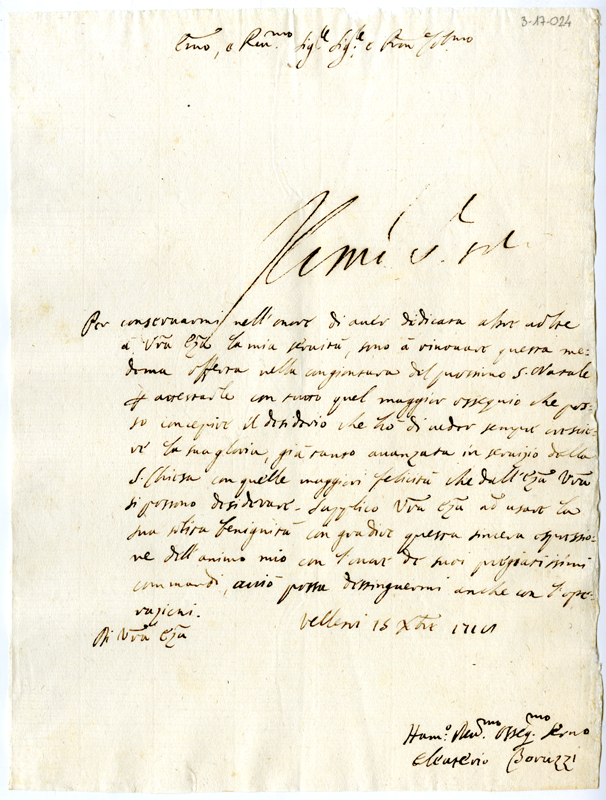 3-17-024
Emo, e Reu.mo Sig.re Sig.re e Pron Colmo
Per conseruarmi nell'onore di auer dedicata altre uolte
à Vrã Ezã la mia seruitù, sono à rinouare questa me-
dema offerta nella congiontura del prossimo S. Natale
attestarle con tutto quel maggior ossequio che pos-
so concepire il desiderio che hò di ueder sempre cresce-
re la sua gloria, già tanto auanzata in seruizio della
S. Chiesa con quelle maggiori felicità che dall'Ezã Vrã
si possono desiderare. Supplico Vrã Ezã ad usare la
sua solita benignità con gradire questa sincera espressio-
ne dell'animo mio con l'onore de suoi pregiatissimi
commandi, acciò possa distinguermi anche con l'ope-
razioni.
Di Vrã Ezã
Velletri 15 Xbre
Hum.o Deu.mo Osseq.mo Seruo
Eleuterio Boruzzi